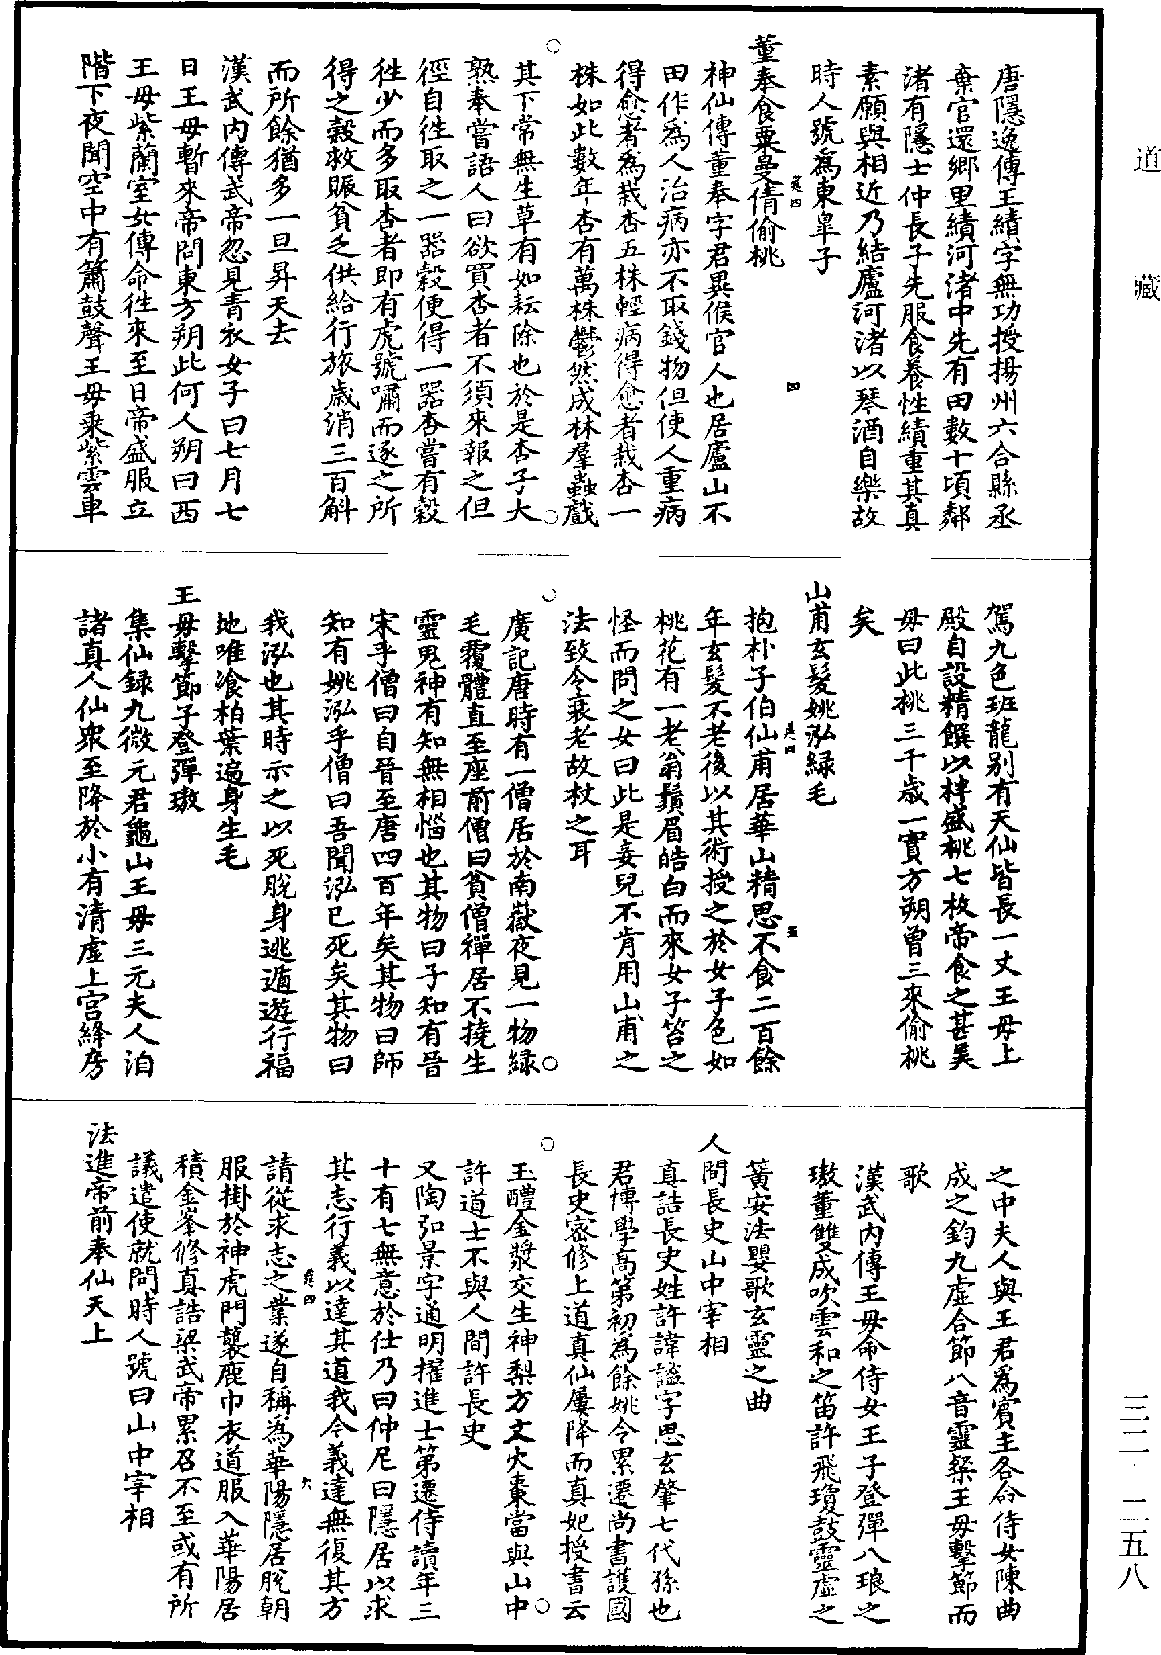 道藏
唐隱逸傳王績字無功授揚州六合縣丞
棄官還鄉里績河渚中先有田數十頃鄰
渚有隱士仲長子先服食養性績重其真
素願與相近乃結廬河渚以琴酒自樂故
時人號為東皐子
董奉食粟曼倩偷桃
神仙傳董奉字君異候官人也居廬山不
田作為人治病亦不取錢物但使人重病
得愈者為栽杏五株輕病得愈者栽杏一
株如此數年杏有萬株鬱然成林羣蟲戲
其下常無生草有如耘除也於是杏子大
熟奉嘗語人曰欲買杏者不須來報之但
徑自徃取之一器穀便得一器杏嘗有穀
徃少而多取杏者即有虎號嘯而逐之所
得之穀救賑貧乏供給行旅歲消三百斛
而所餘猶多一旦昇天去
漢武內傳武帝忽見青衣女子曰七月七
日王母暫來帝問東方朔此何人朔曰西
王母紫蘭室女傳命徃來至日帝盛服立
階下夜聞空中有簫鼓聲王母乘紫雲車
駕九色班龍別有天仙皆長一丈王母上
殿自設精饌以柈盛桃七枚帝食之甚美
母曰此桃三千歲一實方朔曾三來偷桃
矣
山甫玄髮姚泓綠毛
抱朴子伯仙甫居華山精思不食二百餘
年玄髮不老後以其術授之於女子色如
桃花有一老翁鬚眉皓白而來女子笞之
怪而問之女曰此是妾兒不肯用山甫之
法致令衰老故杖之耳
廣記唐時有一僧居於南嶽夜見一物綠
毛覆體直至座前僧曰貧僧禪居不撓生
靈鬼神有知無相惱也其物曰子知有晉
宋乎僧曰自晉至唐四百年矣其物曰師
知有姚泓乎僧曰吾聞泓已死矣其物曰
我泓也其時示之以死脫身逃遁遊行福
地唯飡柏葉遍身生毛
王母擊節子登彈璈
集仙録九微元君龜山王母三元夫人洎
諸真人仙衆至降於小有清虛上宮絳房
之中夫人與王君為賓主各命侍女陳曲
成之鈞九虛合節八音靈粲王母擊節而
歌
漢武內傳王母命侍女王子登彈八琅之
璈董雙成吹雲和之笛許飛瓊鼓靈虛之
簧安法嬰歌玄靈之曲
人間長史山中宰相
真誥長史姓許諱謐字思玄肇七代孫也
君博學高第初為餘姚令累遷尚書護國
長史密修上道真仙屢降而真妃授書云
玉醴金漿交生神梨方丈火棗當與山中
許道士不與人間許長史
又陶弘景字通明擢進士第遷侍讀年三
十有七無意於仕乃曰仲尼曰隱居以求
其志行義以達其道我今義達無復其方
請從求志之業遂自稱為華陽隱居脫朝
服掛於神虎門襲鹿巾衣道服入華陽居
積金峯修真誥梁武帝累召不至或有所
議遣使就問時人號曰山中宰相
法進帝前奉仙天上
三二·二五八